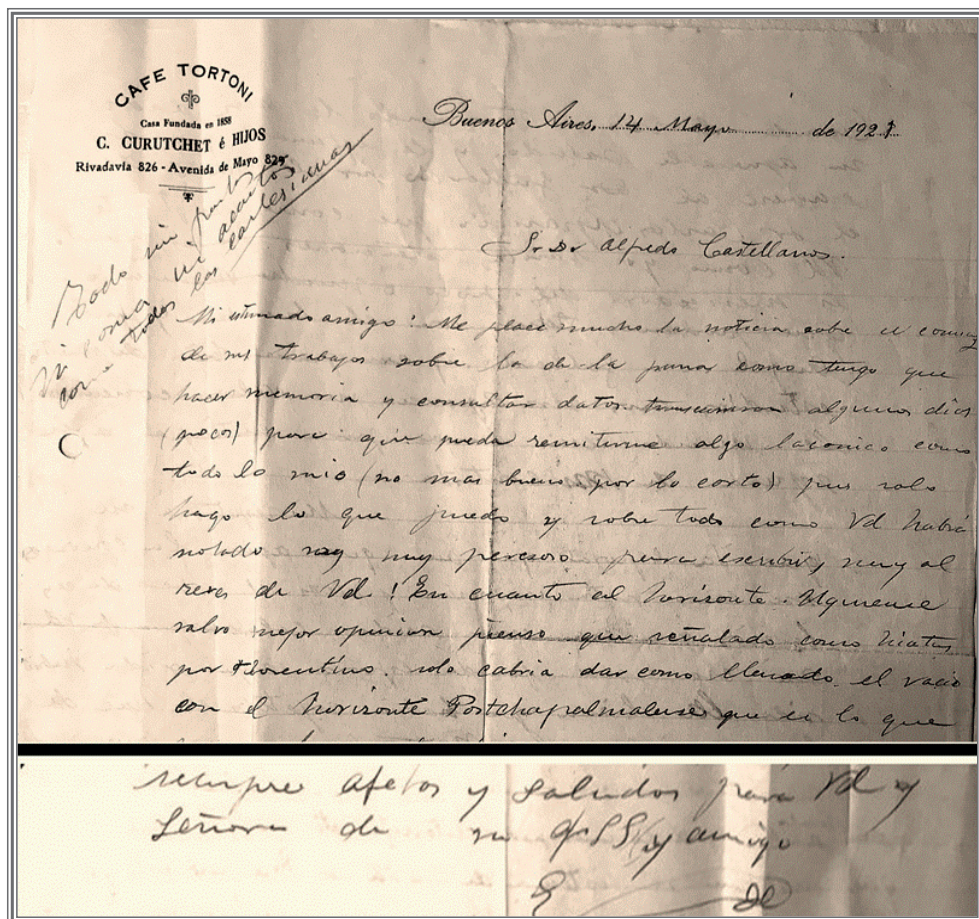 CAFE TORTONI
Casa Fundada en 1858
C. CURUTCHET é HIJOS
Rivadavia 826 - Avenida de Mayo 829
Buenos Aires, 14 Mayo de 192
Sr Dr Alfredo Castellanos.
Todo sin puntos
ni coma ni acentos
como todas las cartesianas
Mi estimado amigo! Me place mucho la noticia sobre el
de mis trabajos sobre la de la pampa como tengo que
hacer memoria y consultar datos algunos dias
(pocos) para que pueda remitirme algo laconico como
todo lo mio (no mas bueno por lo corto) pues solo
hago lo que puedo y sobre todo como Vd habrá
notado soy muy peresoso para escribir, muy al
reves de Vd! En cuanto al horisonte Uquiense
salvo mejor opinion pienso que señalado como hiatus
por Florentino. solo cabria dar como llenado el vacio
con el horisonte Postchapalmalense que es lo que
siempre afetos y saludos para Vd y
Señora de su y amigo